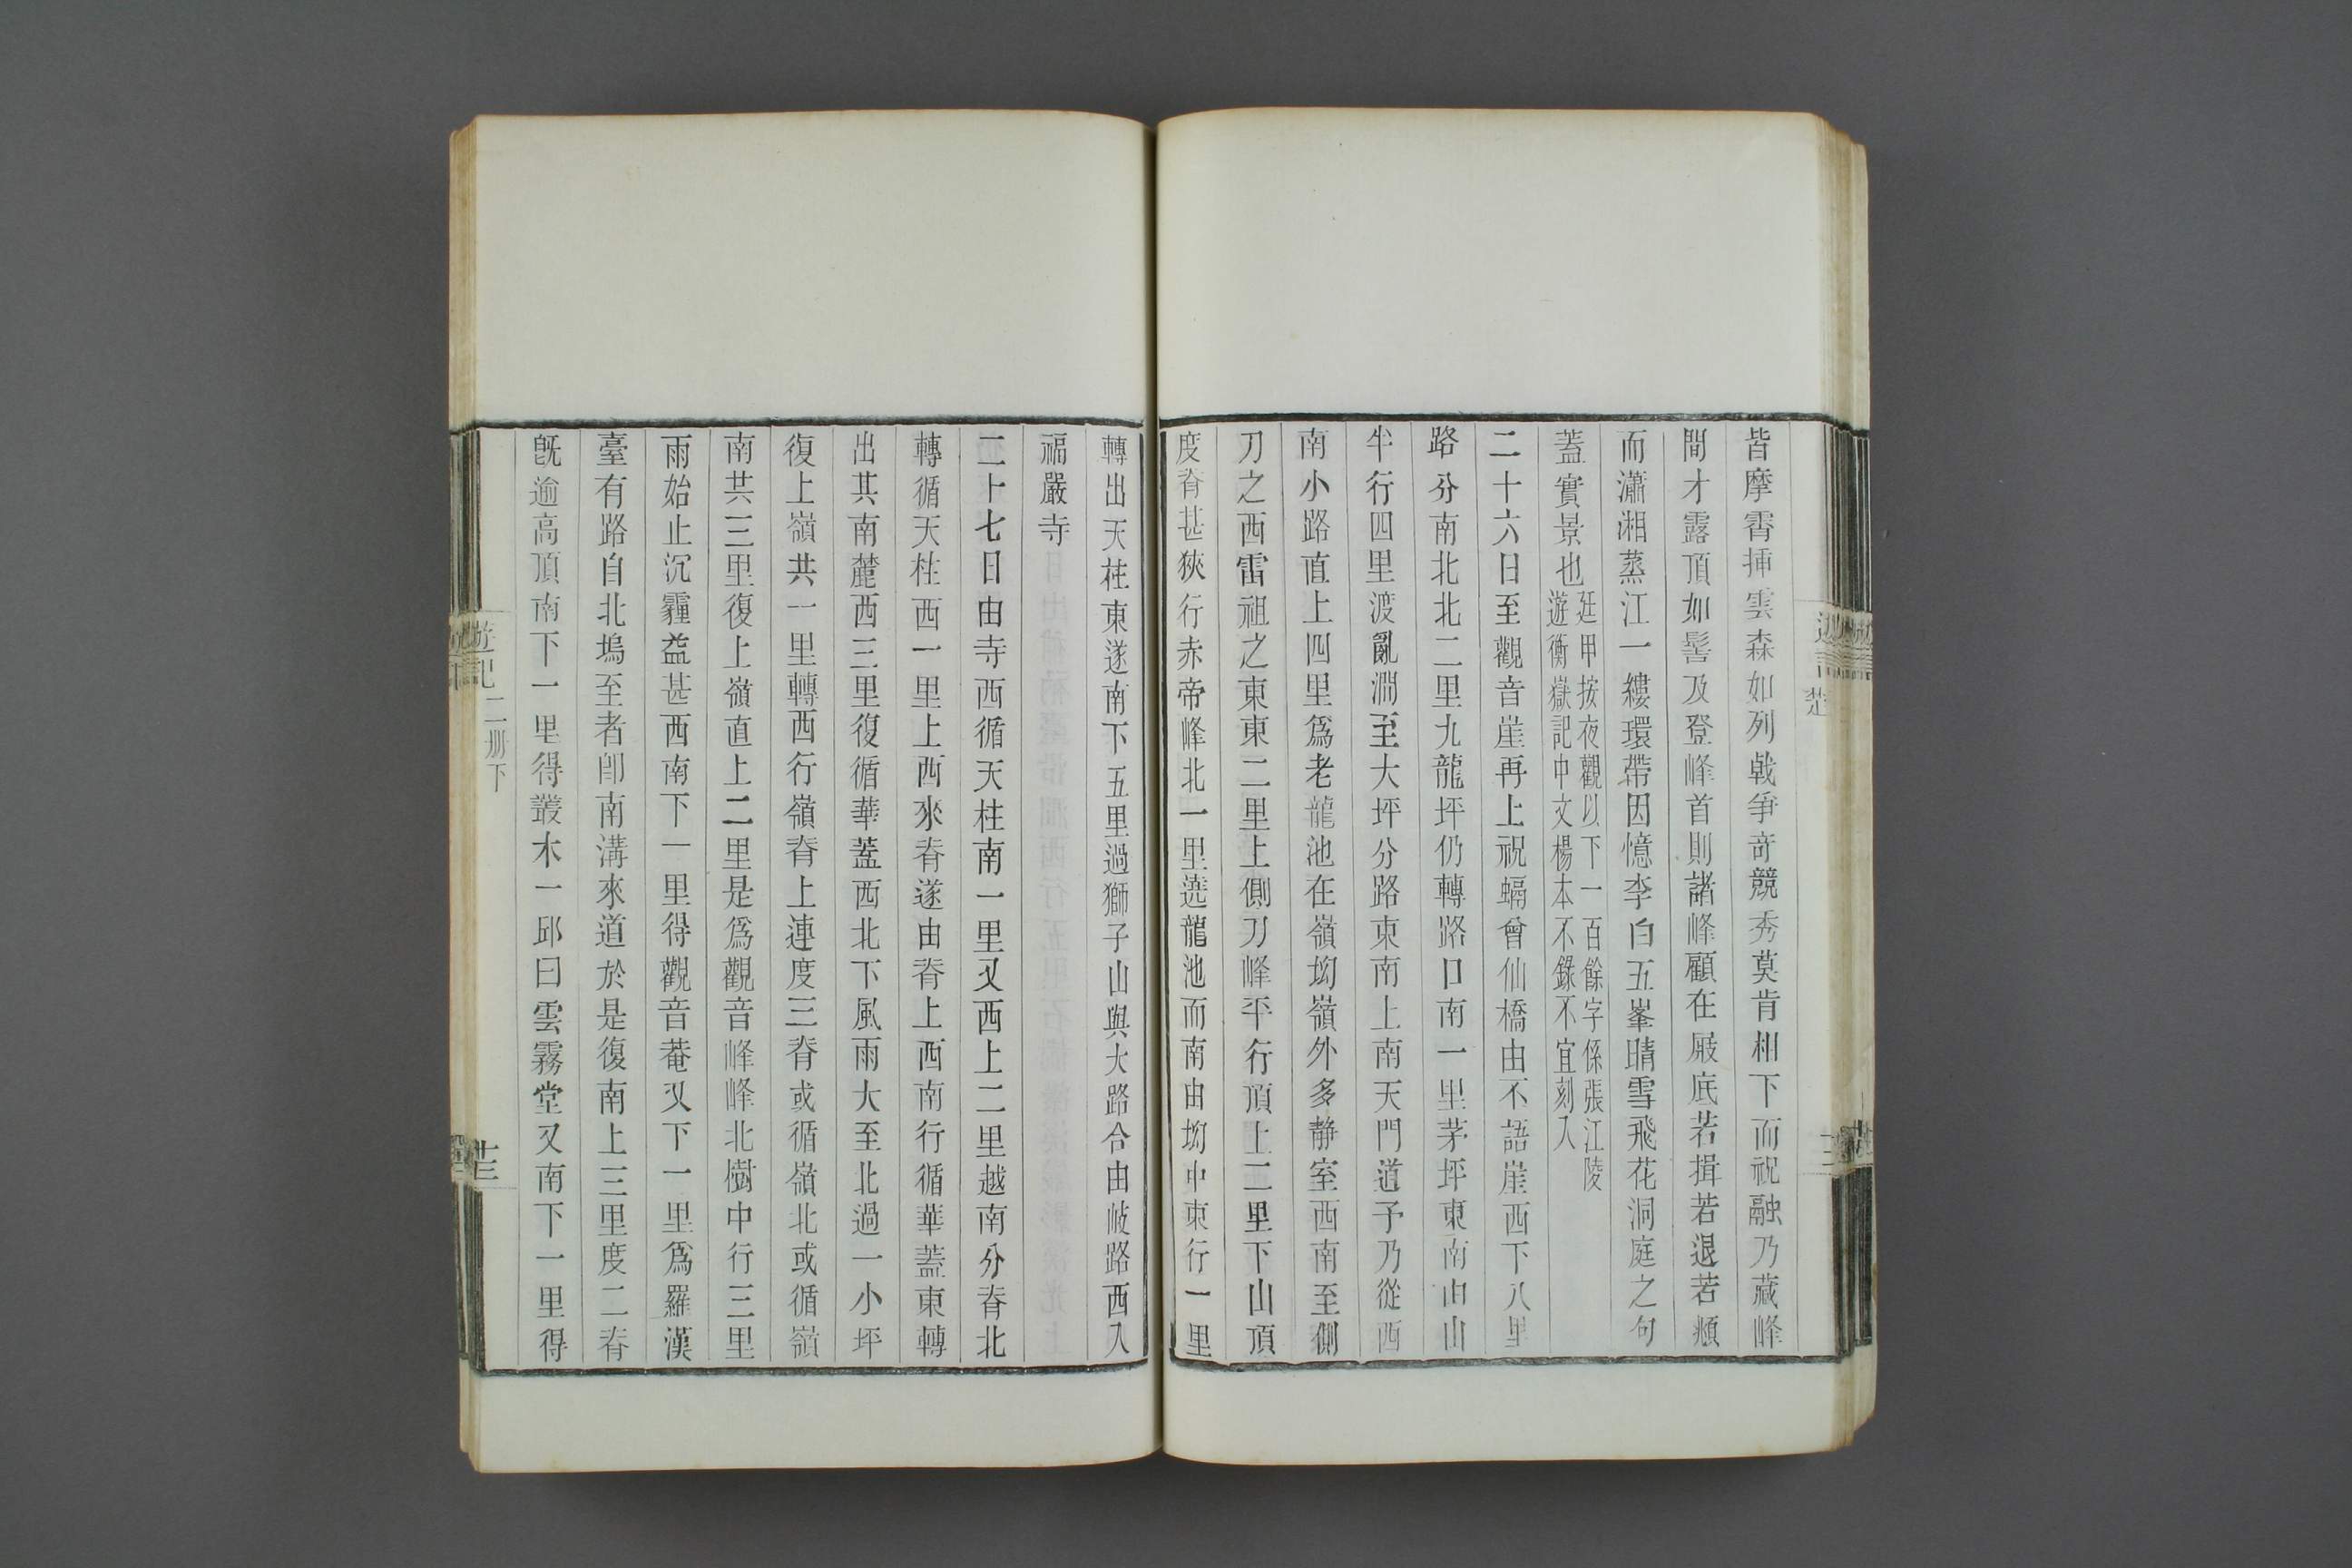 皆摩霄揷雲森如列戟爭奇競秀莫肯相下而祝融乃藏峰
間才露頂如髻及登峰首則諸峰顧在屐底若揖若退若頫
而瀟湘蒸江一縷環帶因憶李白五峯晴雪飛花洞庭之句
蓋實景也廷甲按夜觀以下一百餘字係張江陵
遊衡嶽記中文楊本不錄不宜刻入
二十六日至觀音崖再上祝螎曾仙橋由不語崖西下八里
路分南北北二里九龍坪仍轉路口南一里茅坪東南由山
半行四里渡亂澗至大坪分路東南上南天門道予乃從西
南小路直上四里爲老龍池在嶺坳嶺外多静室西南至側
刀之西雷祖之東東二里上側刀峰平行頂上二里下山頂
度脊甚狹行赤帝峰北一里遶龍池而南由坳中東行一里
轉出天柱東遂南下五里過獅子山與大路合由岐路西入
福嚴寺
二十七日由寺西循天柱南一里又西上二里越南分脊北
轉循天柱西一里上西來脊遂由脊上西南行循華蓋東轉
出其南麓西三里復循華蓋西北下風雨大至北過一小坪
復上嶺共一里轉西行嶺脊上連度三脊或循嶺北或循嶺
南共三里復上嶺直上二里是爲觀音峰峰北樹中行三里
雨始止沉霾益甚西南下一里得觀音菴又下一里爲羅漢
臺有路自北塢至者卽南溝來道於是復南上三里度二脊
旣逾高頂南下一里得叢木一邱曰雲霧堂又南下一里得
遊記 二册下 廿三